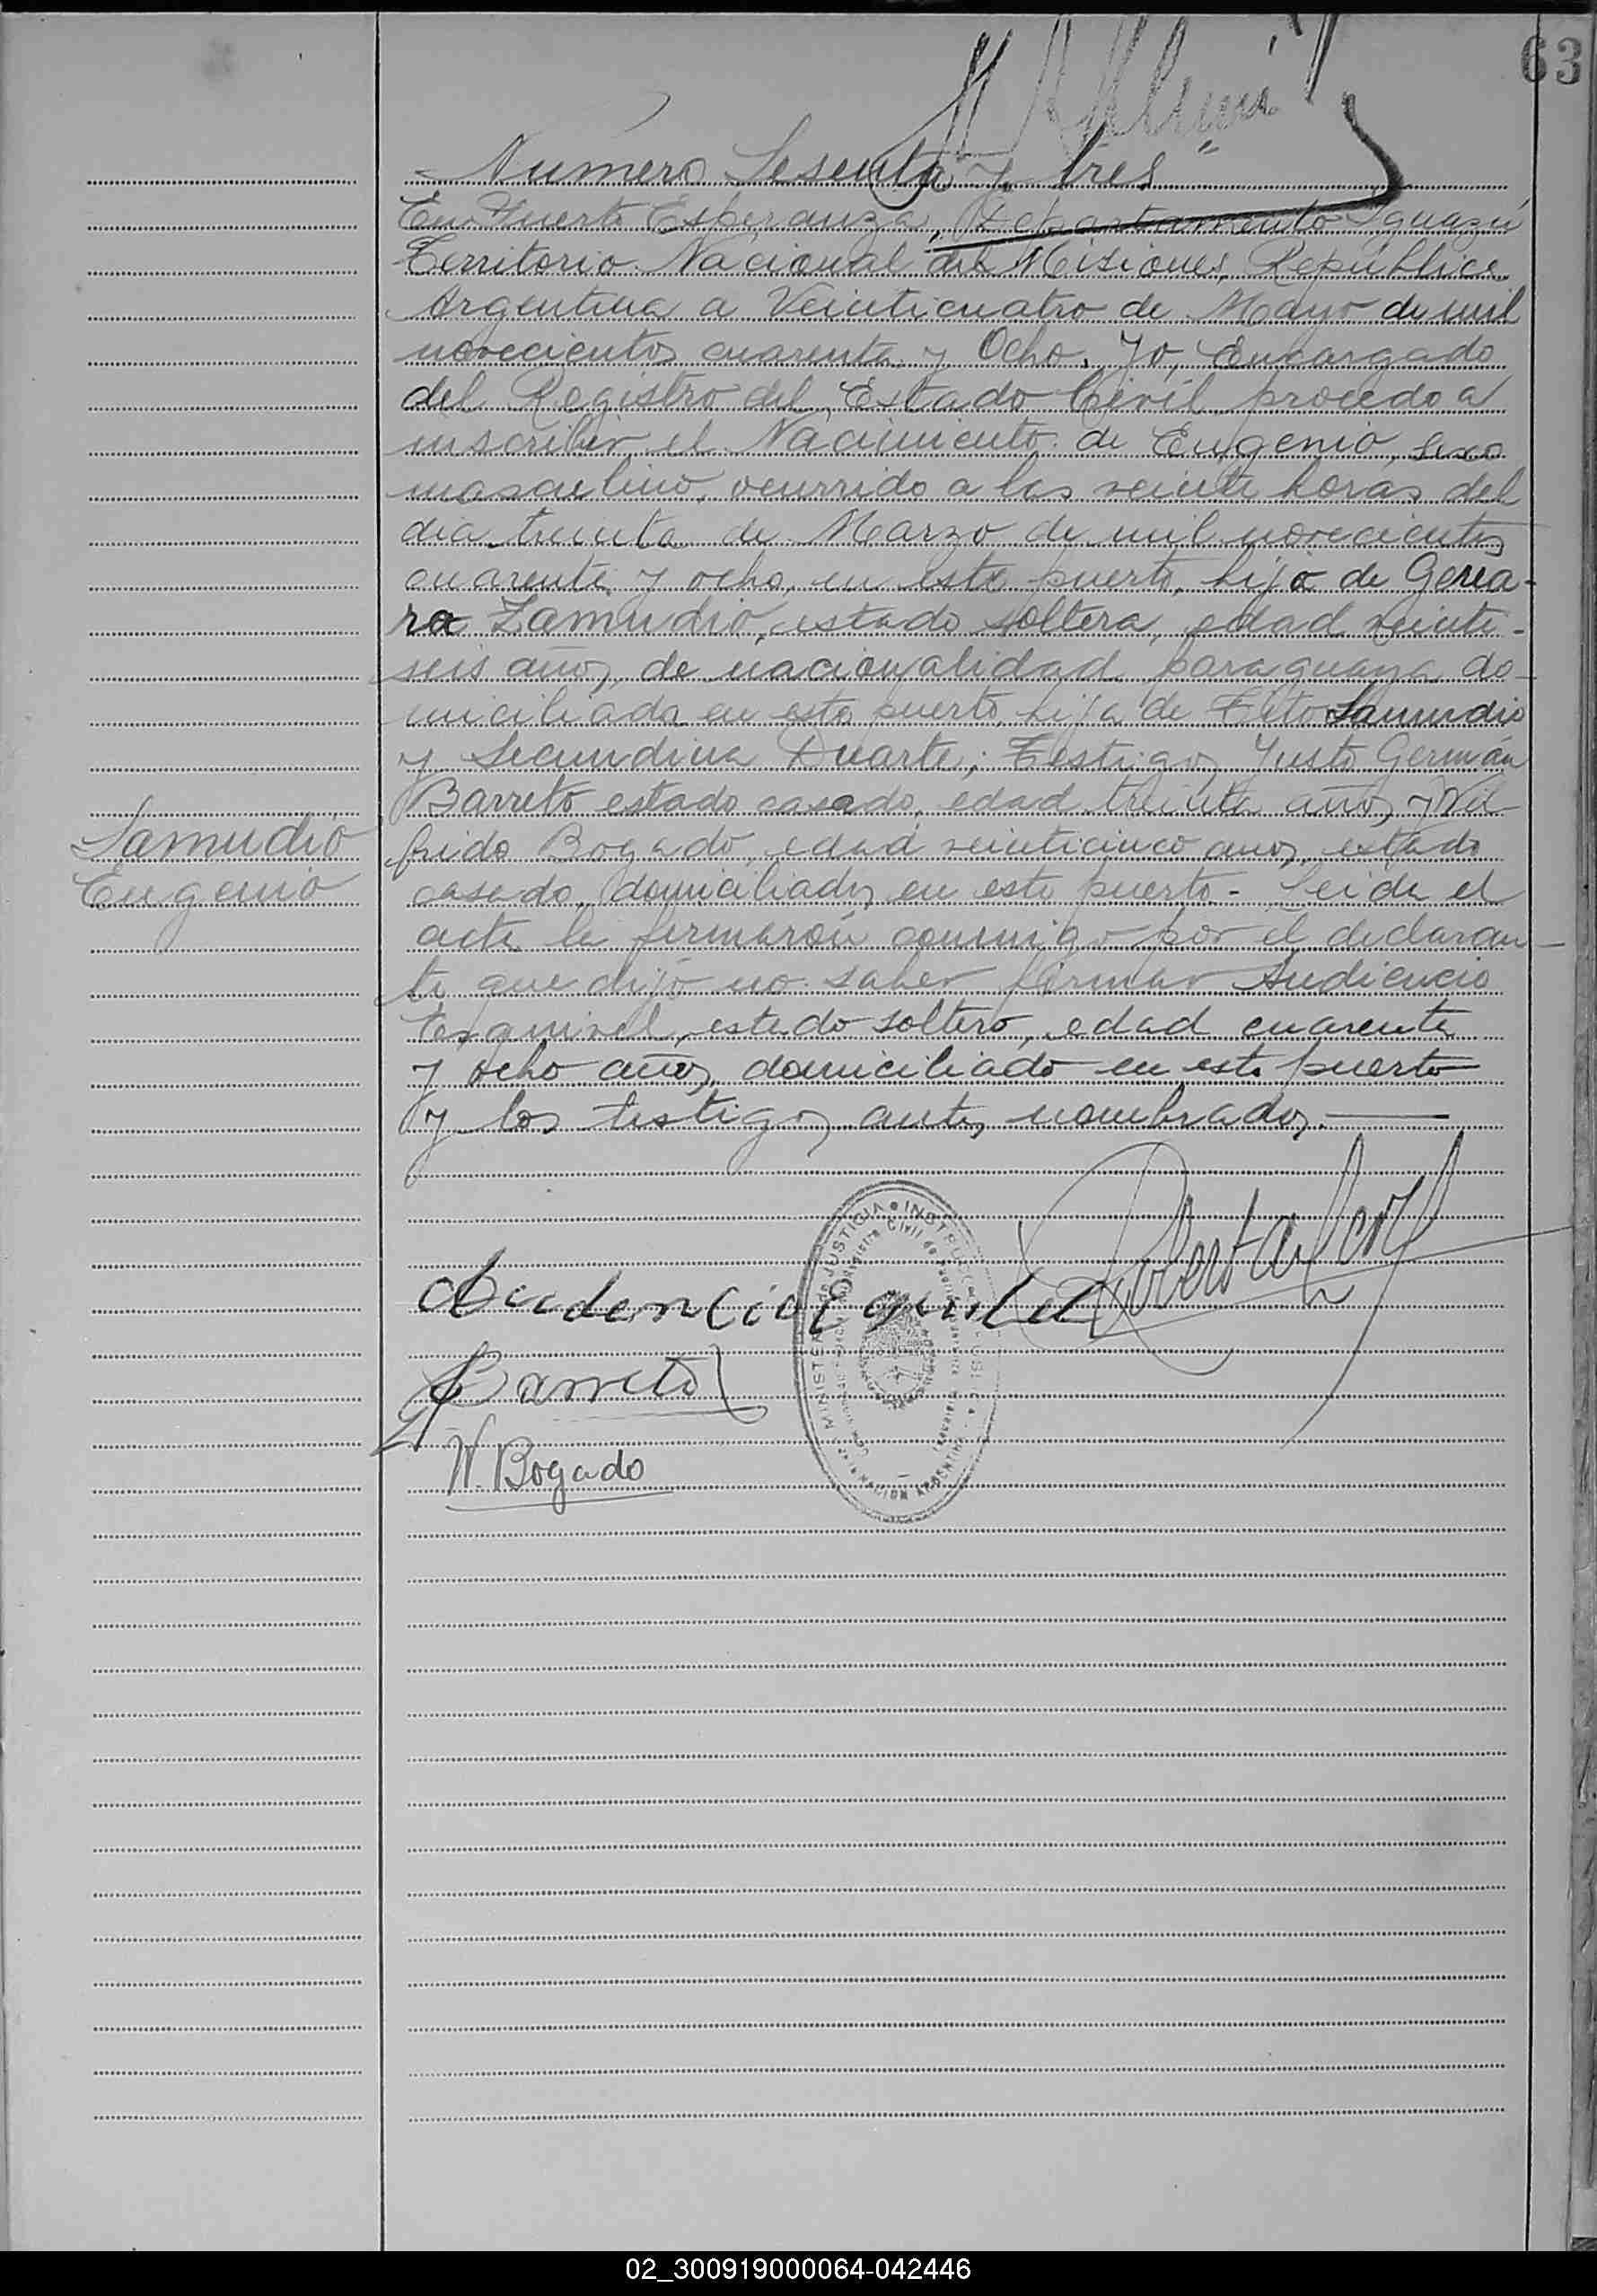 63
Numero Sesenta y tres"
En Puerto Esperanza, Departamento Iguazú
Territorio Nacional de Misiones, República
Argentina a Veinticuatro de Mayo de mil
novecientos cuarenta y Ocho, yo, Encargado
del Registro del Estado Civil procedo a
inscribir el Nacimiento de Eugenio, sexo
masculino, ocurrido a las veinte horas del
dia treinta de Marzo de mil novecientos
cuarenta y ocho, en este puerto, hijo de
Zamudio, estado soltera, edad veinti-
seis años, de nacionalidad paraguaya do-
miciliada en este puerto, hija de Samudio
y Secundina Duarte; Testigos Justo Germán
Barreto estado casado, edad treinta años, y Wil
Samudio
frido Bogado, edad veinticinco años, estado
Eugenio
casado, domiciliados en este puerto - Leida el
acta la firmarón conmigo por el declaran-
te que dijó no saber firmar Audiencio
Esquivel, estado soltero, edad cuarenta
y ocho años, domiciliado en este puerto
y los testigos antes nombrados.
Barreto
W. Bogado
MINISTERIO DE JUSTICIA
NACION ARGENTINA
02_300919000064-042446